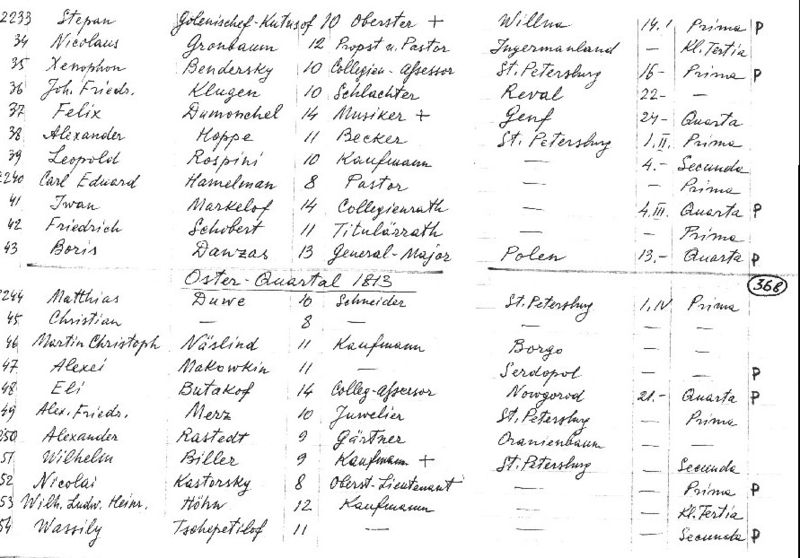 2233 Stepan Golenischef-Kutusof 10 Oberster + Willna 14.I Prima P
34 Nicolaus Gronbaum 12 Propst u. Pastor Ingermanland — Kl. Tertia
35 Xenophon Bendersky 10 Collegien-Assessor St. Petersburg 16- Prima P
36 Joh. Friedr. Klugen 10 Schlachter Reval 22- —
37 Felix Dumonchel 14 Musiker + Genf 24- Quarta
38 Alexander Hoppe 11 Becker St. Petersburg 1.II. Prima
39 Leopold Rospini 10 Kaufmann — 4.- Secunda
2240 Carl Eduard Hamelman 8 Pastor — - Prima
41 Iwan Markelof 14 Collegienrath — 4.III. Quarta P
42 Friedrich Schobert 11 Titulärrath — - Prima
43 Boris Dawzas 13 General-Major Polen 13.- Quarta P
Oster-Quartal 1813 368
2244 Matthias Duwe 10 Schneider St. Petersburg 1.IV Prima
45 Christian — 8 — — - —
46 Martin Christoph Näslind 11 Kaufmann Borgo — —
47 Alexei Makowkin 11 — Serdopol — — P
48 Eli Butakof 14 Colleg-Assessor Nowgorod 21.- Quarta P
49 Alex. Friedr. Merz 10 Juwelier St. Petersburg — Prima
250 Alexander Rastedt 9 Gärtner Oranienbaum — —
51 Wilhelm Biller 9 Kaufmann + St. Petersburg — Secunda
52 Nicolai Kastorsky 8 Oberst-Lieutenant — — Prima P
53 Wilh. Ludw. Heinr. Höhn 12 Kaufmann — — Kl. Tertia
54 Wassily Tschepetilof 11 — — — Secunda P